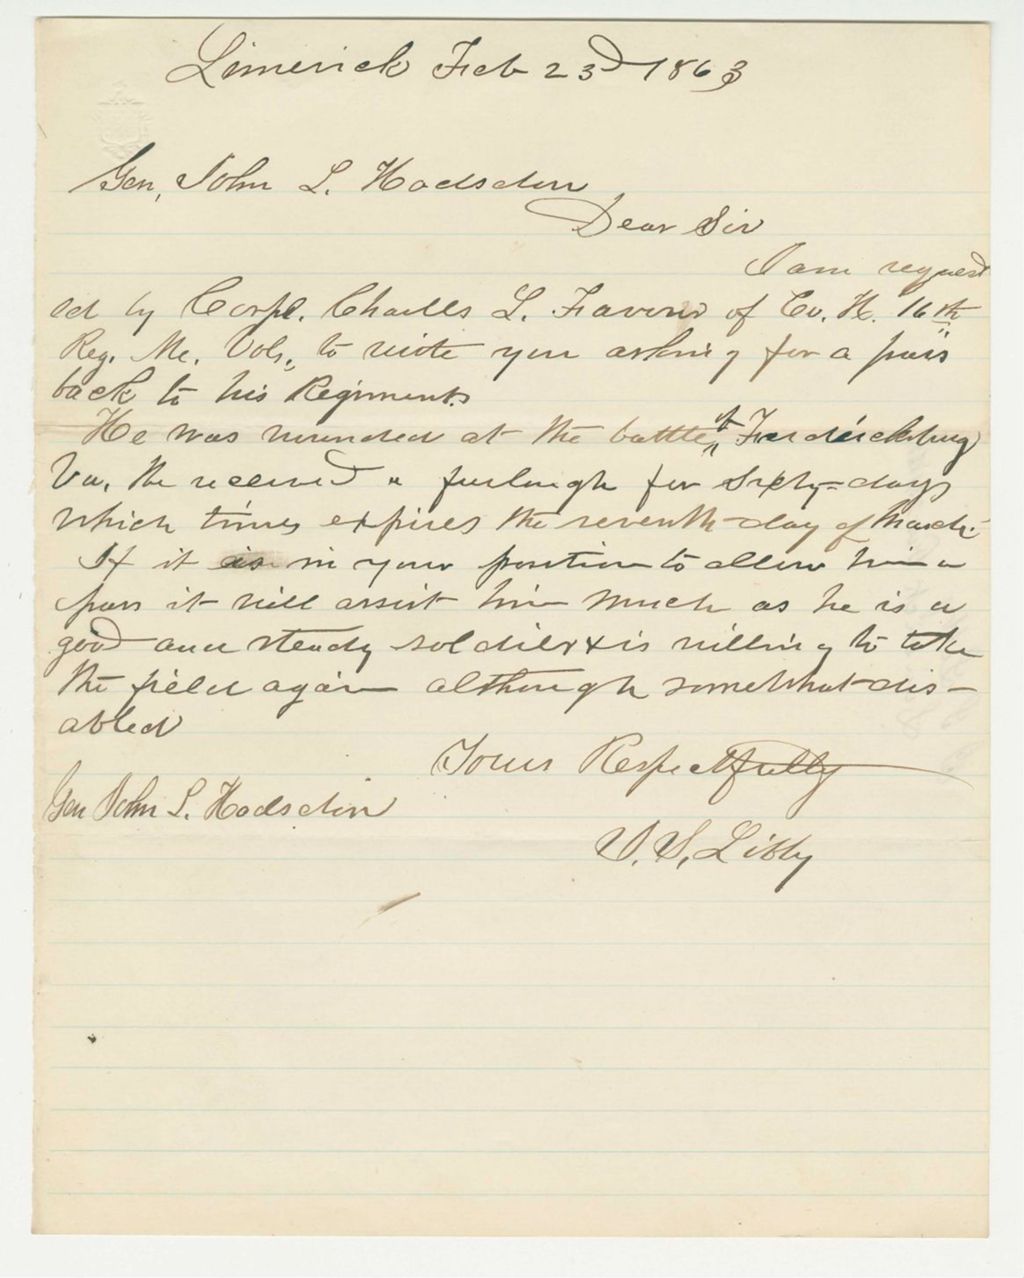 Limerick Feb 23d 1863
Gen, John L. Hodsdon
Dear Sir
I am request
ed by Corpl. Charles L. Favour of Co. H. 16th
Reg. Me. Vols, to write you asking for a pass
back to his Regiment.
He was wounded at the battle of Frederickburg
Va, He received a furlough for Sixty-days
which times expires the seventh-day of March.
If it is in your position to allow him a
pass it will assist him much as he is a
good and steady soldier & is willing to take
the field again although somewhat dis-
abled
Yours Respectfully
Gen John L. Hodsdon
S. Libby